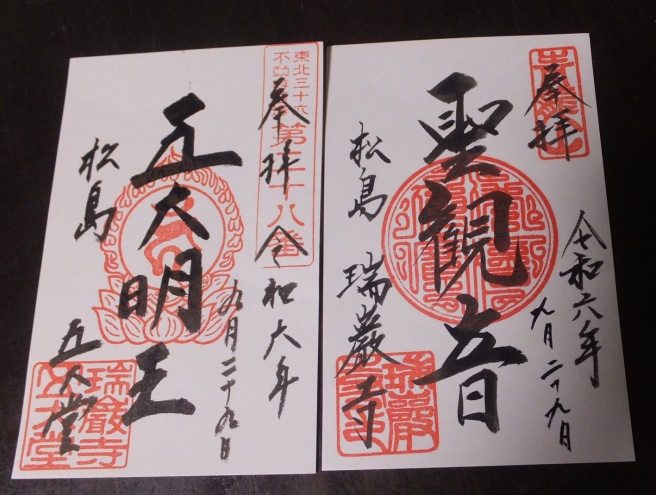 奉拝
令和六年
九月二十九日
聖観音
松島 瑞巌寺
東北三十六
不動
第二十八番
奉拝 令和六年
九月二十九日
五大明王
松島 五大堂
瑞巌寺
五大堂